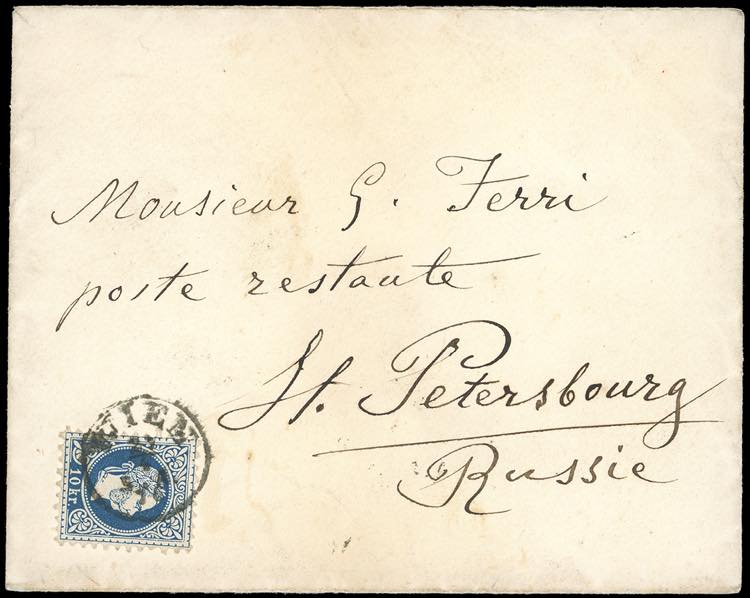 Monsieur G. Ferri
poste restante
St. Petersbourg
Russie
WIEN
10 kr